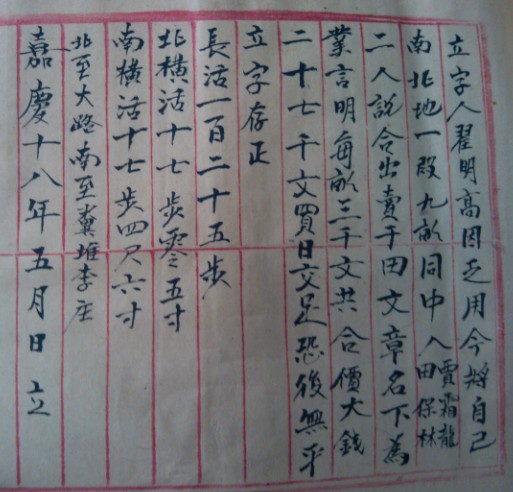 立字人翟明高因乏用今將自己
南北地一段九畝同中人賈霜龍田保林
二人說合出賣于田文章名下為
業言明每畝三千文共合價大錢
二十七千文買日交足恐後無平
立字存正
長活一百二十五步
北橫活十七步零五寸
南橫活十七步四尺六寸
北至大路南至糞堆李庄
嘉慶十八年五月日立